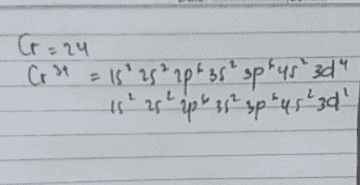 Cr = 24
Cr³⁺ = 1s² 2s² 2p⁶ 3s² 3p⁶ 4s² 3d⁴
1s² 2s² 2p⁶ 3s² 3p⁶ 4s² 3d¹